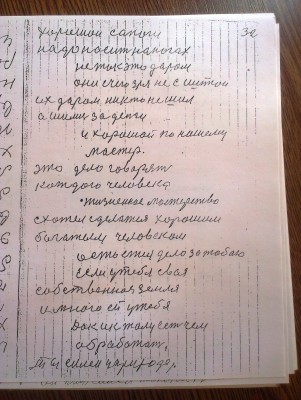 32
хорошой сапоги
надо носит на ногах
не так это даром
они с чего зря не с шитой
их даром никто не шил
а шили за денги
и хорошой по нашему
мастер.
это дело говорят
каждого человека
жизненное мастерство
схотел сделатся хорошим
богатым человеком
остаётся дело за тобою
если у тебя своя
собственная земля
и много ей у тебя
да к тому есть чем
обработат.
ты силен у природе,